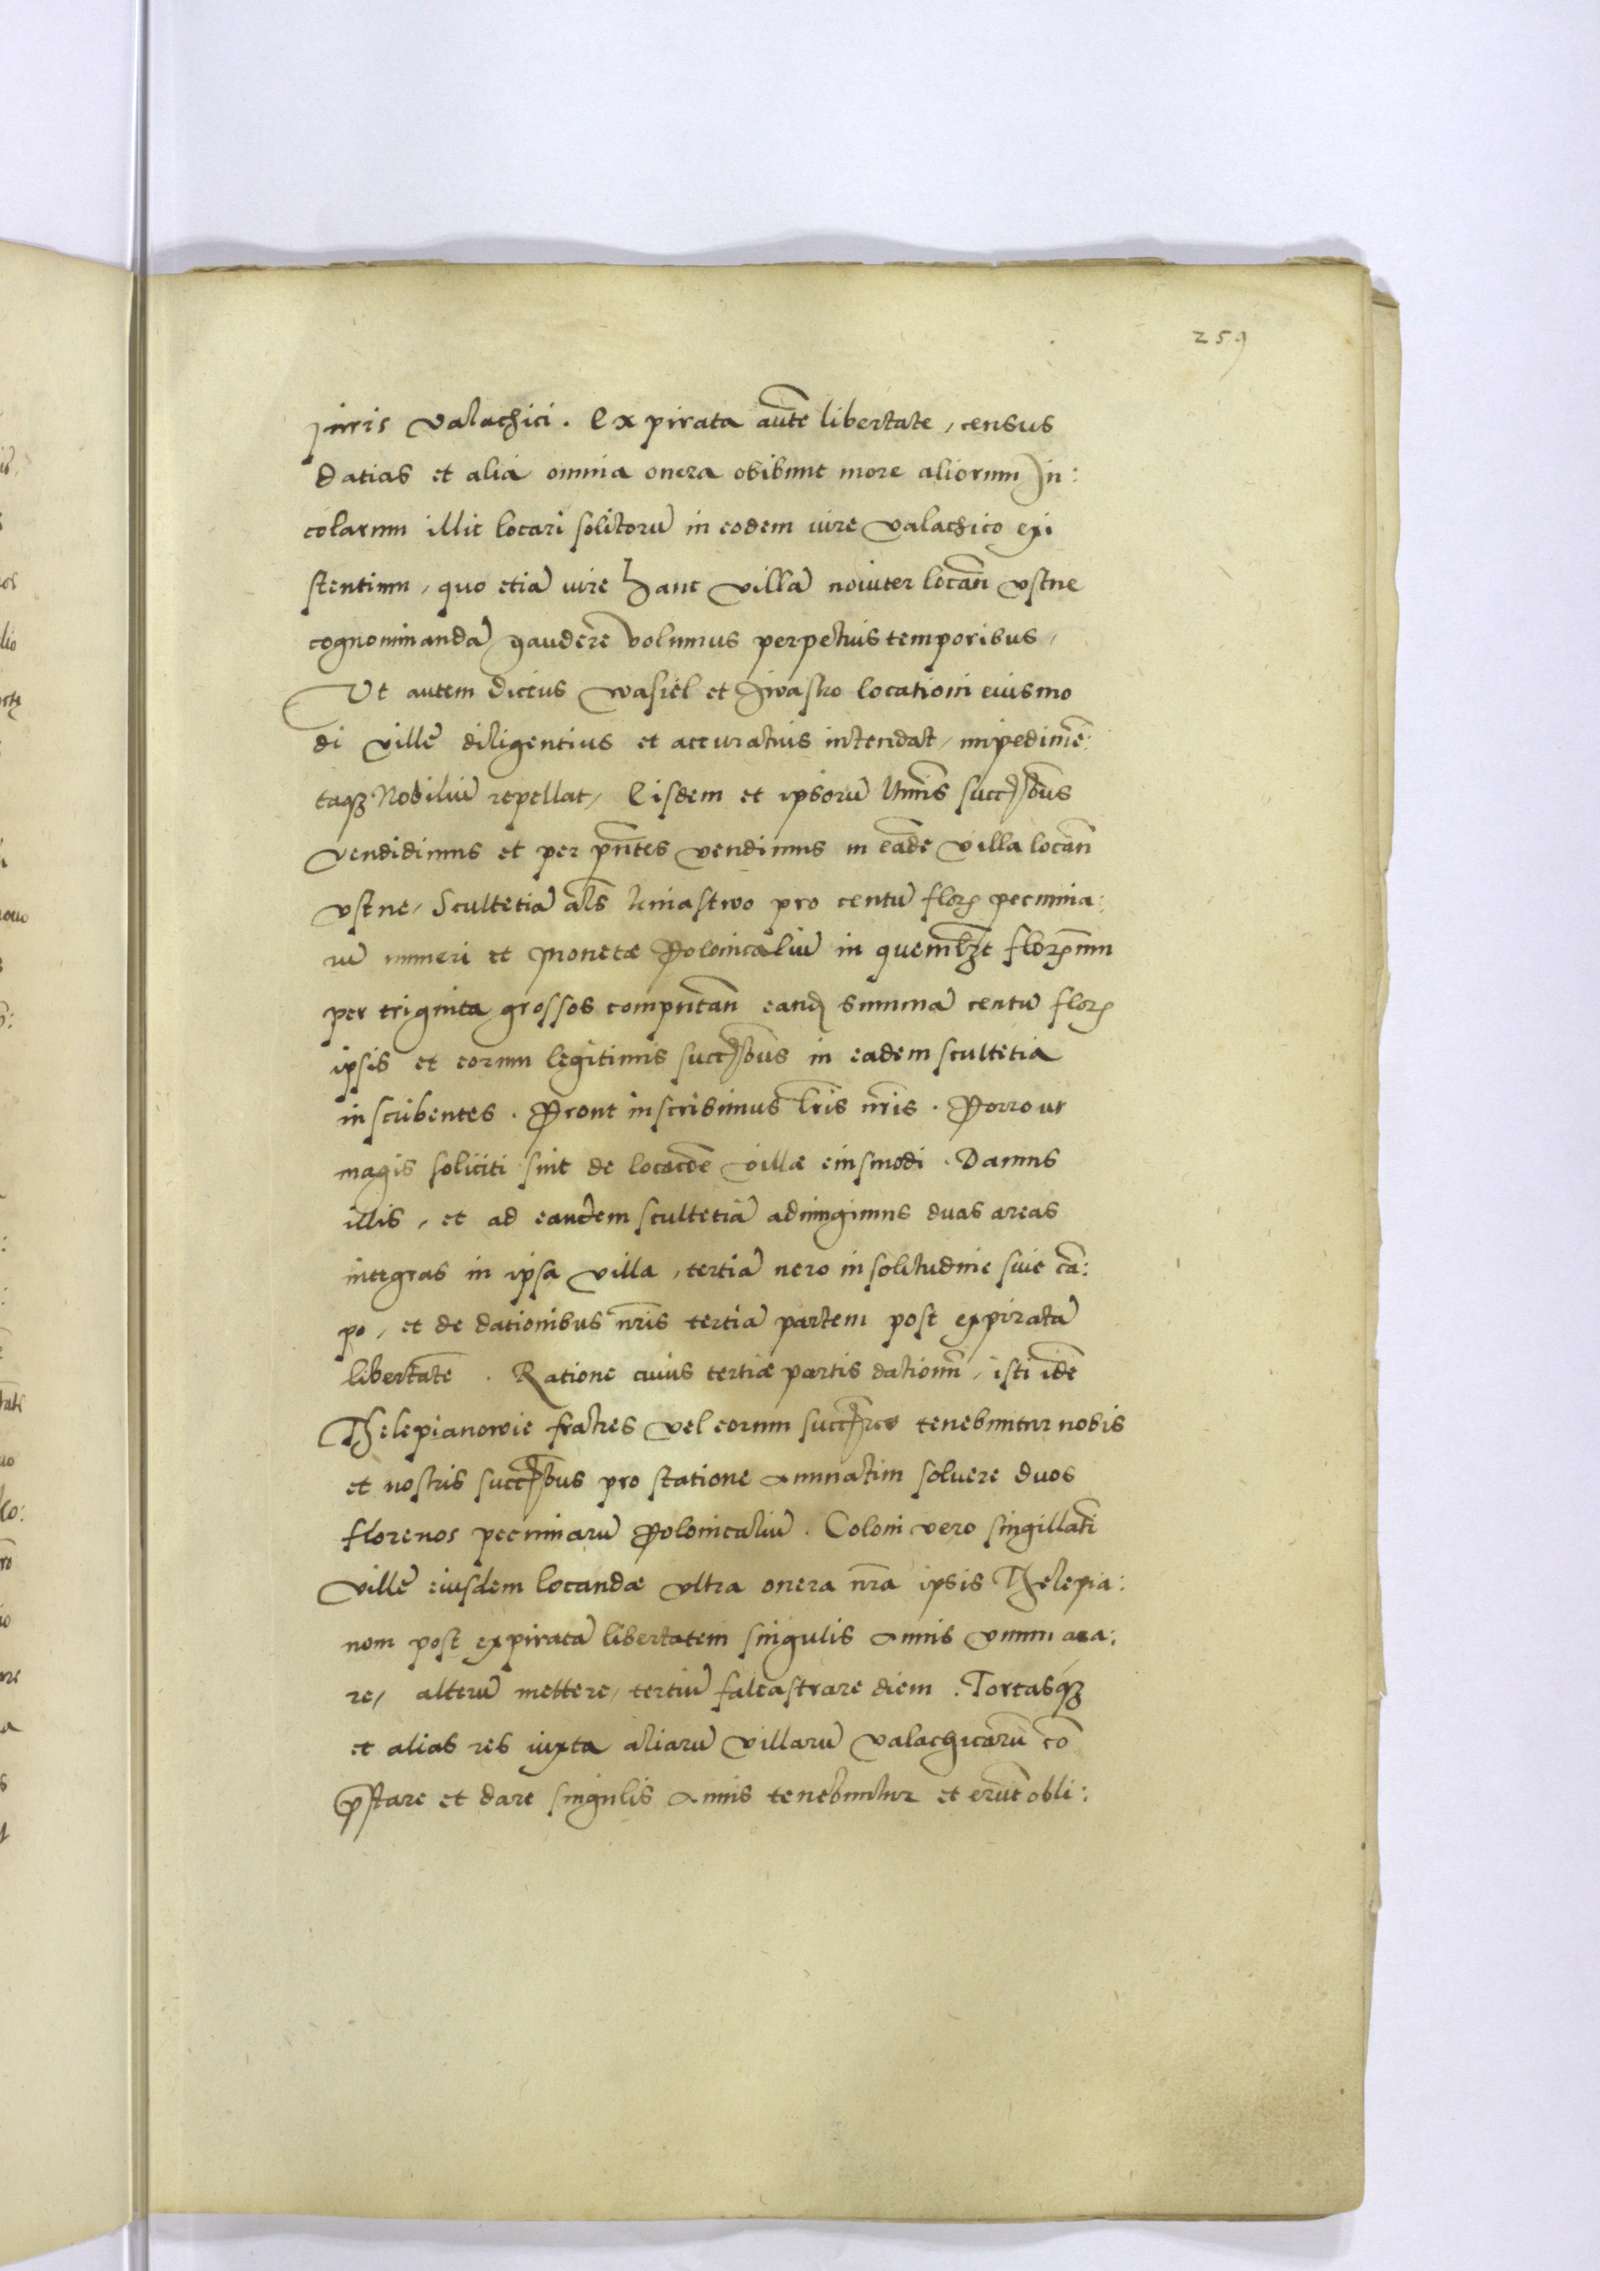 259
Juris Valachici. Expirata aute͂ libertate, census
datias et alia omnia onera obibunt more aliorum In:
colarum illic locari solitoru͂ in eodem iure Valachico exi
stentium, quo etia͂ iure hanc villa͂ noviter locan͂ Vstne
cognominanda͂ gaudere volumus perpetuis temporibus,
Ut autem dictus Wasiel et Iwasko locationi eiusmo
di ville͂ diligentius et accuratius intendat, impedime͂:
taq3 Nobiliu͂ repellat, Eisdem et ipsoru͂ l͂timis succ͂ſſbus
vendidimus et per pn͂tes vendimus in eade͂ villa locan͂
Vstne, Scultetia͂ al͂s kniastwo pro centu͂ flor͂ pecunia:
ru͂ numeri et monetæ Polonicaliu͂ in quem͂l3t flor͂enum
per triginta grossos computan͂ eand͂ summa͂ centu͂ flor͂
ipsis et eorum legitimis succ͂ſſbus in eadem scultetia
inscribentes. Prout inscribimus l͂ris n͂ris. Porro ut
magis soliciti sint de locac͂oe villæ eiusmodi. Damus
illis, et ad eandem scultetia͂ adiungimus duas areas
integras in ipsa villa, tertia͂ vero in solitudine sive ca͂:
po, et de dationibus n͂ris tertia͂ partem post expirata͂
libertate͂. Ratione cuius tertiæ partis dationu͂, isti ide͂
Thelepianowie fratres vel eorum succ͂ſſres tenebuntur nobis
et nostris succ͂ſſbus pro statione annuatim soluere duos
florenos pecuniaru͂ Polonicaliu͂. Coloni vero singillati͂
ville͂ eiusdem locandæ vltra onera n͂ra ipsis Thelepia:
nom post expirata͂ libertatem singulis annis vnum ara:
re, alteru͂ mettere, tertiu͂ falcastrare diem. Tortasq3
et alias res iuxta aliaru͂ villaru͂ valachicaru͂ co͂
p͂stare et dare singulis annis tenebuntur et erunt obli: